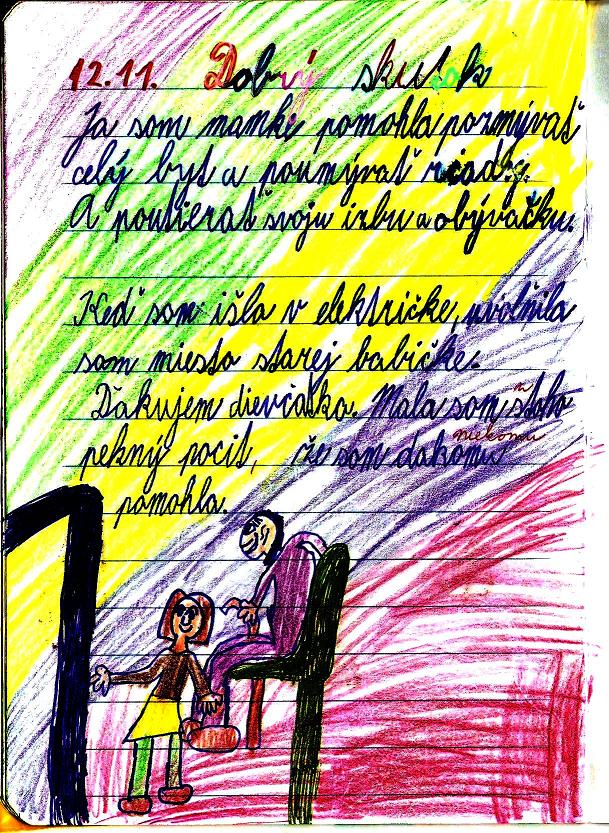 12.11. Dobrý skutok
Ja som mamke pomohla pozmývať
celý byt a poumývať riady.
A poutierať svoju izbu a obývačku.
Keď som išla v električke, uvolnila
som miesto starej babičke.
Ďakujem dievčatko. Mala som stoho
niekomu
pekný pocit, že som dakomu
pomohla.